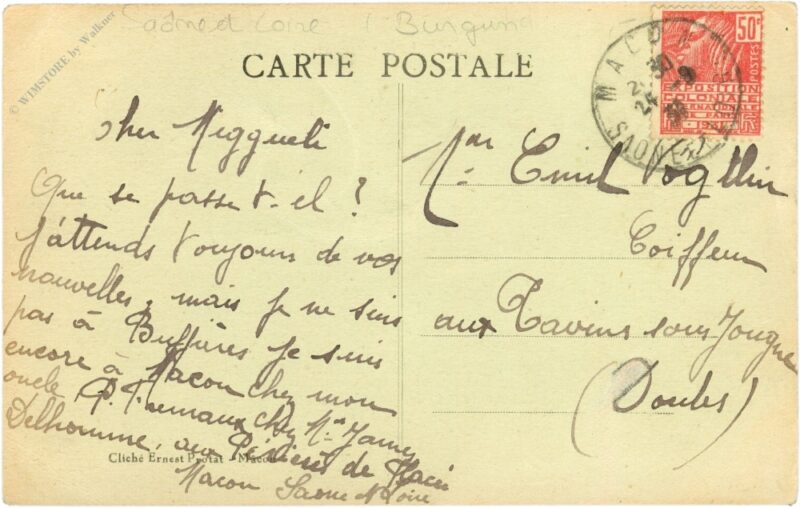 Saône et Loire (Burgun
© WIMSTORE by Walkner
CARTE POSTALE
MACON
SAONE
50c
POSTES
EXPOSITION
COLONIALE
INTERNATIONALE
PARIS
1931
Cher
Que se passe t-il ?
J'attends toujours de vos
nouvelles, mais je ne suis
pas à Buffières je suis
encore à Macon chez mon
oncle P. chez Mr
Delhomme, aux de Flacé
Macon Saone et Loire
Cliché Ernest Protat - Macon
Mr Emil
Coiffeur
aux Tavins sous Jougne
(Doubs)